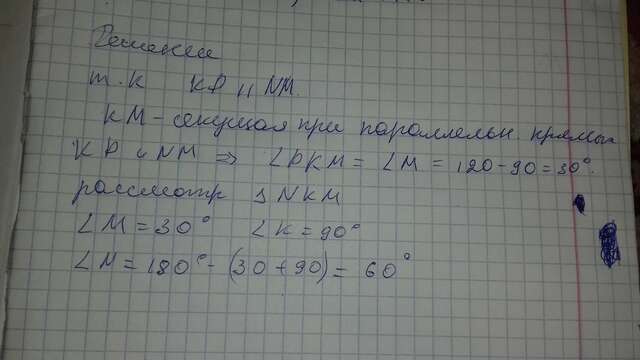 Решение
т.к KD || NM
KM - секущая при параллельн прямых
KD и NM ⇒ ∠DKM = ∠M = 120-90=30°.
рассмотр △ NKM
∠M = 30° ∠K = 90°
∠N = 180°- (30+90) = 60°